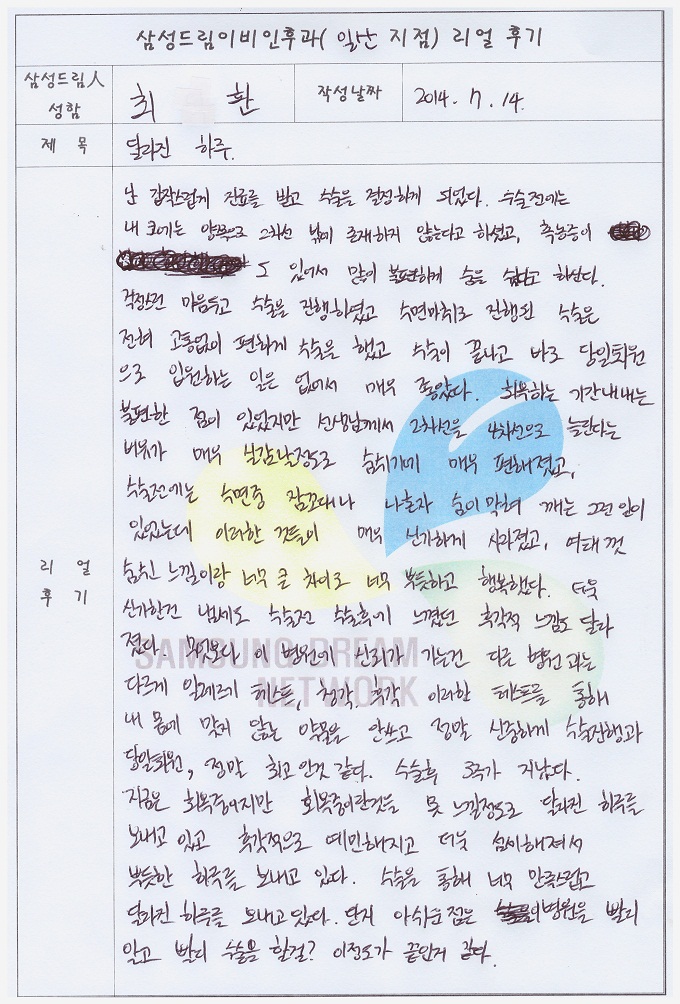 삼성드림이비인후과( 일산 지점) 리얼 후기
삼성드림人 성함
최 환
작성날짜
2014. 7. 14.
제 목
달라진 하루.
리 얼 후 기
난 갑작스럽게 진료를 받고 수술을 결정하게 되었다. 수술전에는
내 코에는 양쪽으로 2차선 밖에 존재하지 않는다고 하셨고, 축농증이
도 있어서 많이 불편하게 숨을 쉰다고 하셨다.
걱정스런 마음두고 수술을 진행하였고 수면마취로 진행된 수술은
전혀 고통없이 편하게 수술을 했고 수술이 끝나고 바로 당일퇴원
으로 입원하는 일은 없어서 매우 좋았다. 회복하는 기간내내는
불편한 점이 있었지만 선생님께서 2차선을 4차선으로 늘린다는
비유가 매우 실감날정도로 숨쉬기에 매우 편해졌고,
수술전에는 수면중 잠꼬대나 나홀자 숨이 막혀 깨는 그런 일이
있었는데 이러한 것들이 매우 신기하게 사라졌고, 여태 껏
숨쉰 느낌이랑 너무 큰 차이로 너무 뿌듯하고 행복했다. 더욱
신기한건 냄세도 수술전 수술후에 느꼈던 후각적 느낌도 달라
졌다. 무엇보다 이 병원에 신뢰가 가는건 다른 병원과는
다르게 알레르기 테스트, 청각, 후각 이러한 테스트를 통해
내 몸에 맞지 않는 약물을 안쓰고 정말 신중하게 수술진행과
당일퇴원, 정말 최고 인것 같다. 수술후 3주가 지났다.
지금은 회복중이지만 회복중이란것을 못 느낄정도로 달라진 하루를
보내고 있고 후각적으로 예민해지고 더욱 섬세해져서
뿌듯한 하루를 보내고 있다. 수술을 통해 너무 만족스럽고
달라진 하루를 보내고있다. 단지 아쉬운점은 이병원을 빨리
알고 빨리 수술을 할걸? 이정도가 끝인거 같다.
SAMSUNG DREAM
NETWORK